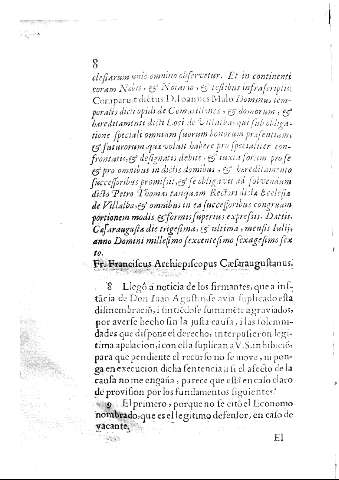 8
clesiarum unio omnino observetur. Et in continenti
coram Nobis, & Notario, & testibus infrascriptis
Comparuit dictus D. Ioannes Malo Dominus tem-
poralis dicti opidi de Camarillas, & omnium
hareditamenti dicti Loci de Villalba, qui sub obliga-
tione speciali omnium suorum bonorum præsentium,
& futurorum, qua voluit habere pro specialiter con-
frontatis, & designatis debite, & iuxta forum pro se
& pro omnibus in dictis domibus, & hareditamento
successoribus promisit, & se obligavit ad solvendum
dicto Petro Thomas tanquam Rectori dictæ Ecclesiæ
de Villalba, & omnibus in ea successoribus congruam
portionem modis & formis superius expressis. Dattis.
Cæsaraugustæ die trigesima, & ultima, mensis Iulij,
anno Domini millesimo sexcentesimo sexagesimo sex
to.
Fr. Franciscus Archiepiscopus Cæsaraugustanus.
8 Llegó a noticia de los firmantes, que a ins-
tăcia de Don Iuan Agustin se avia suplicado esta
dismembració, i sintiédose sumaméte agraviados,
por averse hecho sin la justa causa, i las solemni-
dades que dispone el derecho, interpusieron legi-
tima apelacion, i con ella suplican a V.S. inhibició,
para que pendiente el recurso no se mova, ni pon-
ga en execucion dicha sentencia i si el afecto de la
causa no me engaña, parece que está en caso claro
de provision por los fundamentos siguientes.
9 El primero, porque no se citó el Economo
nombrado, que es el legitimo defensor, en caso de
vacante.
El